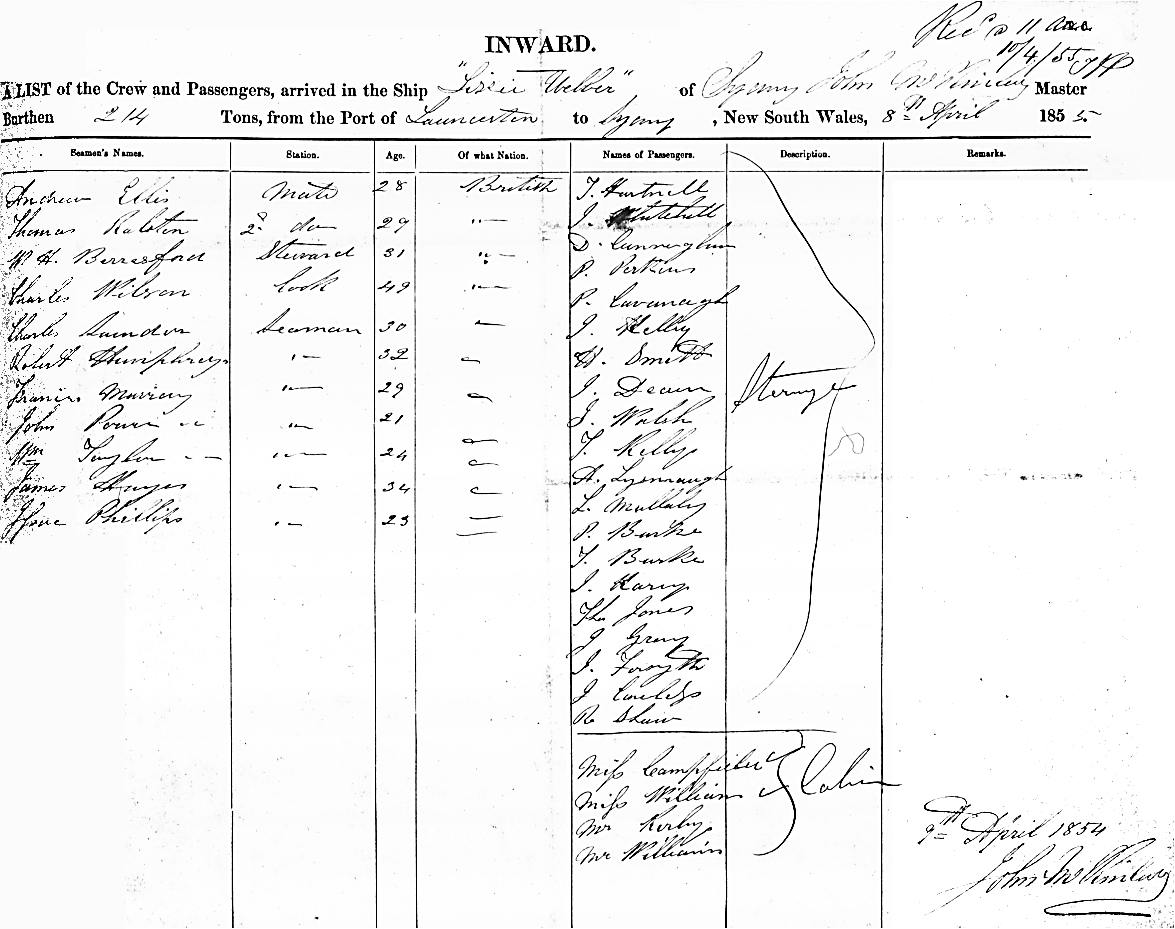 Rec'd 11 a.m.
10/4/55
INWARD.
A LIST of the Crew and Passengers, arrived in the Ship "Lizzie Webber" of Sydney John Master
Burthen 214 Tons, from the Port of Launceston to Sydney, New South Wales, 8th April 1855
Seamen's Names. Station. Age. Of what Nation. Names of Passengers. Description. Remarks.
Andrew Ellis Mate 28 British T. Hartnell
Thomas Ralston 2d do 29 " J. Whitehall
W. H. Berresford Steward 31 " D. Cunningham
P. Perkins
Charles Wilson Cook 49 " P. Cavanagh
Charles Saunders Seaman 30 " J. Kelly
Robert Humphreys " 32 " H. Smith
Francis Murray " 29 " J. Deaun
Steerage
John Power " 21 " J. Walsh
Wm Taylor " 24 " T. Kelly
James Hayes " 34 " H.
Isaac Phillips " 23 " L. Mullaly
P. Burke
T. Burke
J.
Thos Jones
J Gray
J. Forsyth
J
R Shaw
Miss Campfield
Miss Williams Cabin
Mr Kerby
Mr Williams
9th April 1854
John